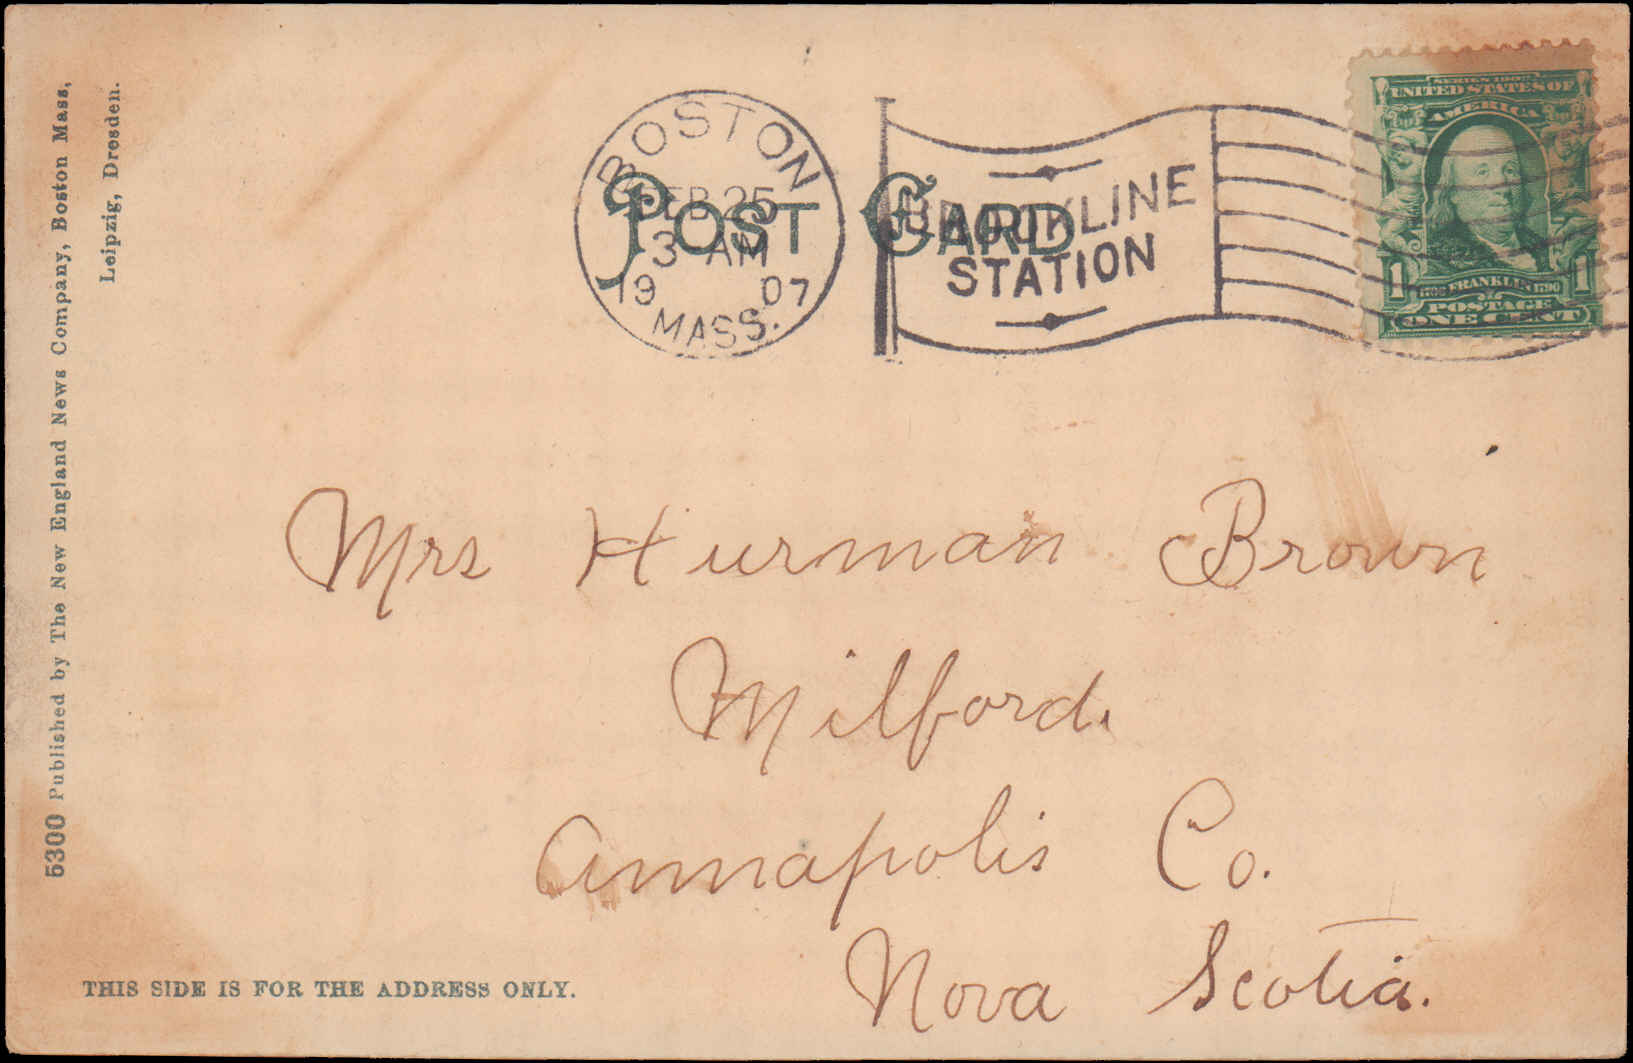 5300 Published by The New England News Company, Boston Mass,
Leipzig, Dresden.
POST CARD
BOSTON
FEB 25
3 AM
1907
MASS.
BROOKLINE
STATION
SERIES 1902
UNITED STATES OF
AMERICA
1706 FRANKLIN 1790
1 1
POSTAGE
ONE CENT
Mrs Hurman Brown
Milford.
Annapolis Co.
Nova Scotia.
THIS SIDE IS FOR THE ADDRESS ONLY.